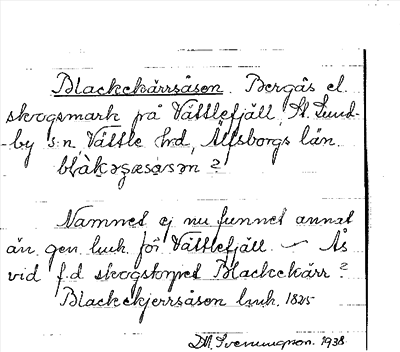 Blackekärrsåsen. Bergås el.
skogsmark på Vättlefjäll, St. Lund-
-by s:n, Vättle hrd, Älfsborgs län.
Namnet ej nu funnet annat
än gen. luk. för Vättlefjäll. — Ås
vid f.d. skogstorpet Blackekärr?
Blackekjerrsåsen luk. 1825
D.A. Svenungson. 1938